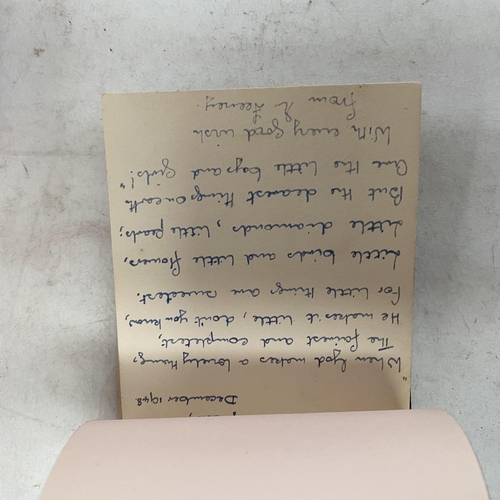 December 1948
"When God makes a lovely thing,
The fairest and completest,
He makes it little, don't you know,
For little things are sweetest.
Little birds and little flowers,
Little diamonds, little pearls;
But the dearest things on earth
Are the little boys and girls!"
With every good wish
from